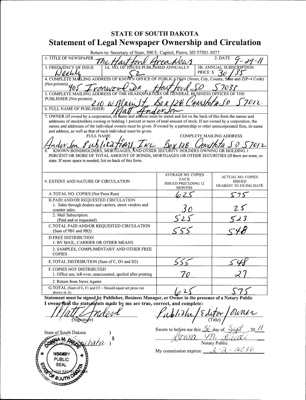 STATE OF SOUTH DAKOTA
Statement of Legal Newspaper Ownership and Circulation
Return to: Secretary of State, 500 E. Capitol, Pierre, SD 57501-5077
1. TITLE OF NEWSPAPER The Hartford Area News 2. DATE 9-28-11
3. FREQUENCY OF ISSUE Weekly 3A. NO. OF ISSUES PUBLISHED ANNUALLY 52 3B. ANNUAL SUBSCRIPTION PRICE $ 30/35
4. COMPLETE MAILING ADDRESS OF KNOWN OFFICE OF PUBLICATION (Street, City, County, State and ZIP+4 Code)
(Not printers) 705 Ironwood Dr Hartford SD 57033
5. COMPLETE MAILING ADDRESS OF THE HEADQUARTERS OF GENERAL BUSINESS OFFICES OF THE
PUBLISHER (Not printer) 210 W Main St Box 128 Canistota SD 57012
6. FULL NAME OF PUBLISHER: Matt Anderson
7. OWNER (If owned by a corporation, its name and address must be stated and also immediately thereunder the names and
addresses of stockholders owning or holding 1 percent or more of total amount of stock. If not owned by a corporation, the
names and addresses of the individual owners must be given. If owned by a partnership or other unincorporated firm, its name
and address, as well as that of each individual must be given.
FULL NAME COMPLETE MAILING ADDRESS
Anderson Publications, Inc. Box 128 Canistota SD 57012
8. KNOWN BONDHOLDERS, MORTGAGEES, AND OTHER SECURITY HOLDERS OWNING OR HOLDING 1
PERCENT OR MORE OF TOTAL AMOUNT OF BONDS, MORTGAGES OR OTHER SECURITIES (If there are none, so
state. If more space is needed, list on back of this form.
9. EXTENT AND NATURE OF CIRCULATION
AVERAGE NO. COPIES EACH ISSUE DURING PRECEDING 12 MONTHS
ACTUAL NO. COPIES ISSUED NEAREST TO FILING DATE
A. TOTAL NO. COPIES (Net Press Run) 625 575
B. PAID AND/OR REQUESTED CIRCULATION
1. Sales through dealers and carriers, street vendors and
counter sales. 30 25
2. Mail Subscription
(Paid and/or requested) 525 523
C. TOTAL PAID AND/OR REQUESTED CIRCULATION
(Sum of 9B1 and 9B2) 555 548
D. FREE DISTRIBUTION
1. BY MAIL, CARRIER OR OTHER MEANS
2. SAMPLES, COMPLIMENTARY AND OTHER FREE
COPIES
E. TOTAL DISTRIBUTION (Sum of C, D1 and D2) 555 548
F. COPIES NOT DISTRIBUTED
1. Office use, left over, unaccounted, spoiled after printing 70 27
2. Return from News Agents
G. TOTAL (Sum of E, F1 and F2 - Should equal net press run
shown in A) 625 575
Statement must be signed by Publisher, Business Manager, or Owner in the presence of a Notary Public
I swear that the statements made by me are true, correct, and complete:
Matt Anderson Publisher/Editor/owner
(Signature) (Title)
State of South Dakota )
Sworn to before me this 30 day of Sept, 2011
Notary Public
My commission expires:
NOTARY
PUBLIC
SEAL
SOUTH DAKOTA